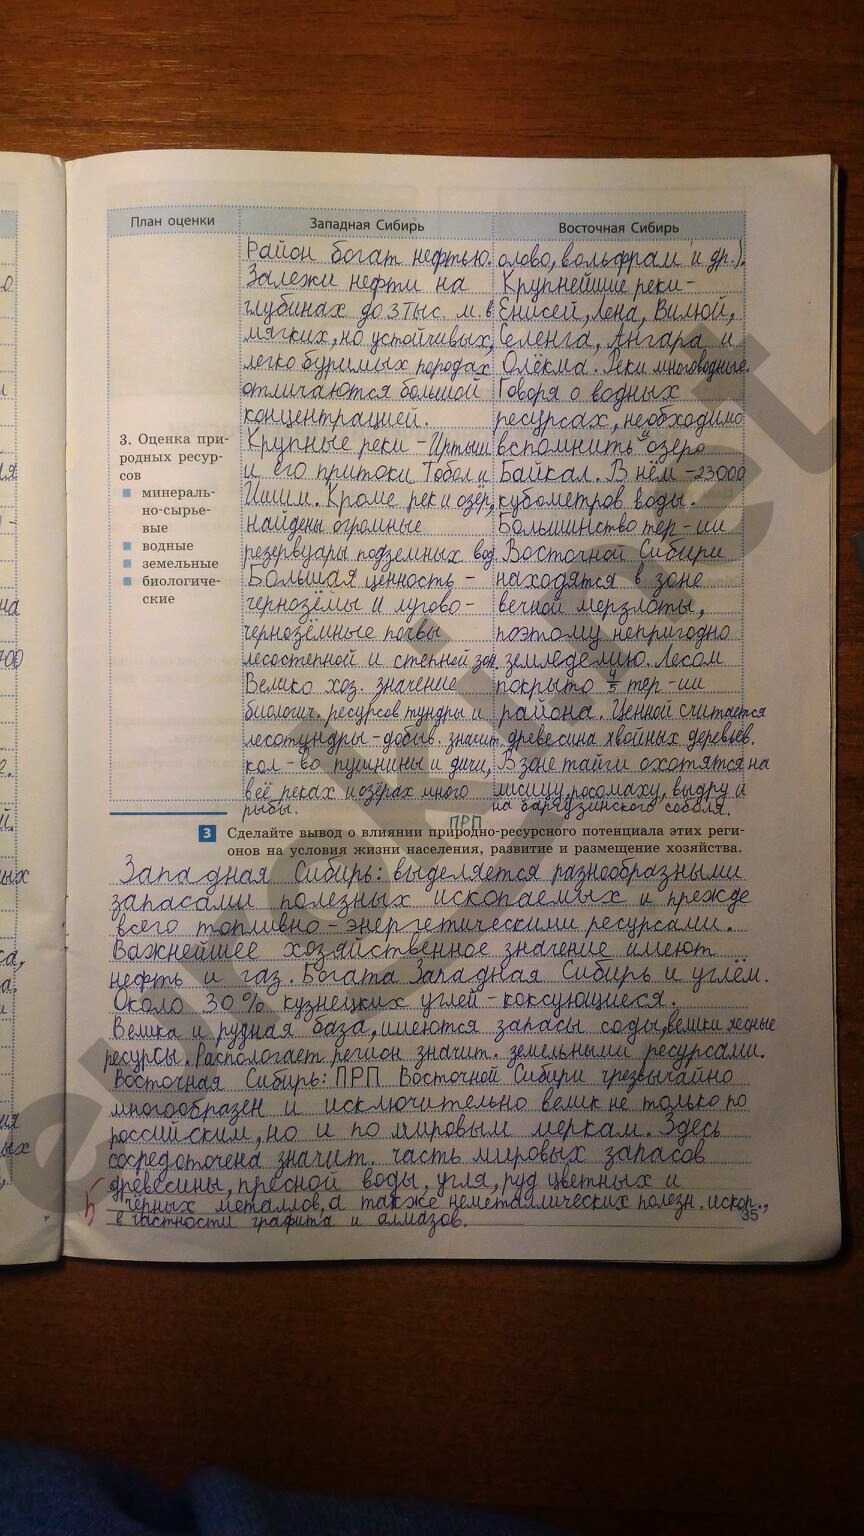 План оценки
Западная Сибирь
Восточная Сибирь
3. Оценка при-
родных ресур-
сов
минераль-
но-сырье-
вые
водные
земельные
биологиче-
ские
Район богат нефтью.
Залежи нефти на
глубинах до 3 тыс. м. в
мягких, но устойчивых,
легко буримых породах
отличаются большой
концентрацией.
Крупные реки - Иртыш
и его притоки Тобол и
Ишим. Кроме рек и озёр,
найдены огромные
резервуары подземных вод
Большая ценность -
чернозёмы и лугово-
чернозёмные почвы
лесостепной и степной зон.
Велико хоз. значение
биологич. ресурсов тундры и
лесотундры - добыв. значит.
кол-во пушнины и дичи,
в её реках и озёрах много
рыбы.
олово, вольфрам и др.).
Крупнейшие реки -
Енисей, Лена, Вилюй,
Селенга, Ангара и
Олёкма. Реки многоводные.
Говоря о водных
ресурсах, необходимо
вспомнить и озеро
Байкал. В нём - 23000
кубометров воды.
Большинство тер-ии
Восточной Сибири
находятся в зоне
вечной мерзлоты,
поэтому непригодно
земледелию. Лесом
покрыто 4/5 тер-ии
района. Ценной считается
древесина хвойных деревьев.
В зоне тайги охотятся на
лисицу, росомаху, выдру и
на баргузинского соболя.
ПРП
3 Сделайте вывод о влиянии природно-ресурсного потенциала этих реги-
онов на условия жизни населения, развитие и размещение хозяйства.
Западная Сибирь: выделяется разнообразными
запасами полезных ископаемых и прежде
всего топливно-энергетическими ресурсами.
Важнейшее хозяйственное значение имеют
нефть и газ. Богата Западная Сибирь и углём.
Около 30% кузнецких углей - коксующиеся.
Велика и рудная база, имеются запасы соды, велики лесные
ресурсы. Распологает регион значит. земельными ресурсами.
Восточная Сибирь: ПРП Восточной Сибири чрезвычайно
многообразен и исключительно велик не только по
российским, но и по мировым меркам. Здесь
сосредоточена значит. часть мировых запасов
древесины, пресной воды, угля, руд цветных и
чёрных металлов, а также неметаллических полезн. ископ.,
в частности графита и алмазов.
5
35
euroki.net